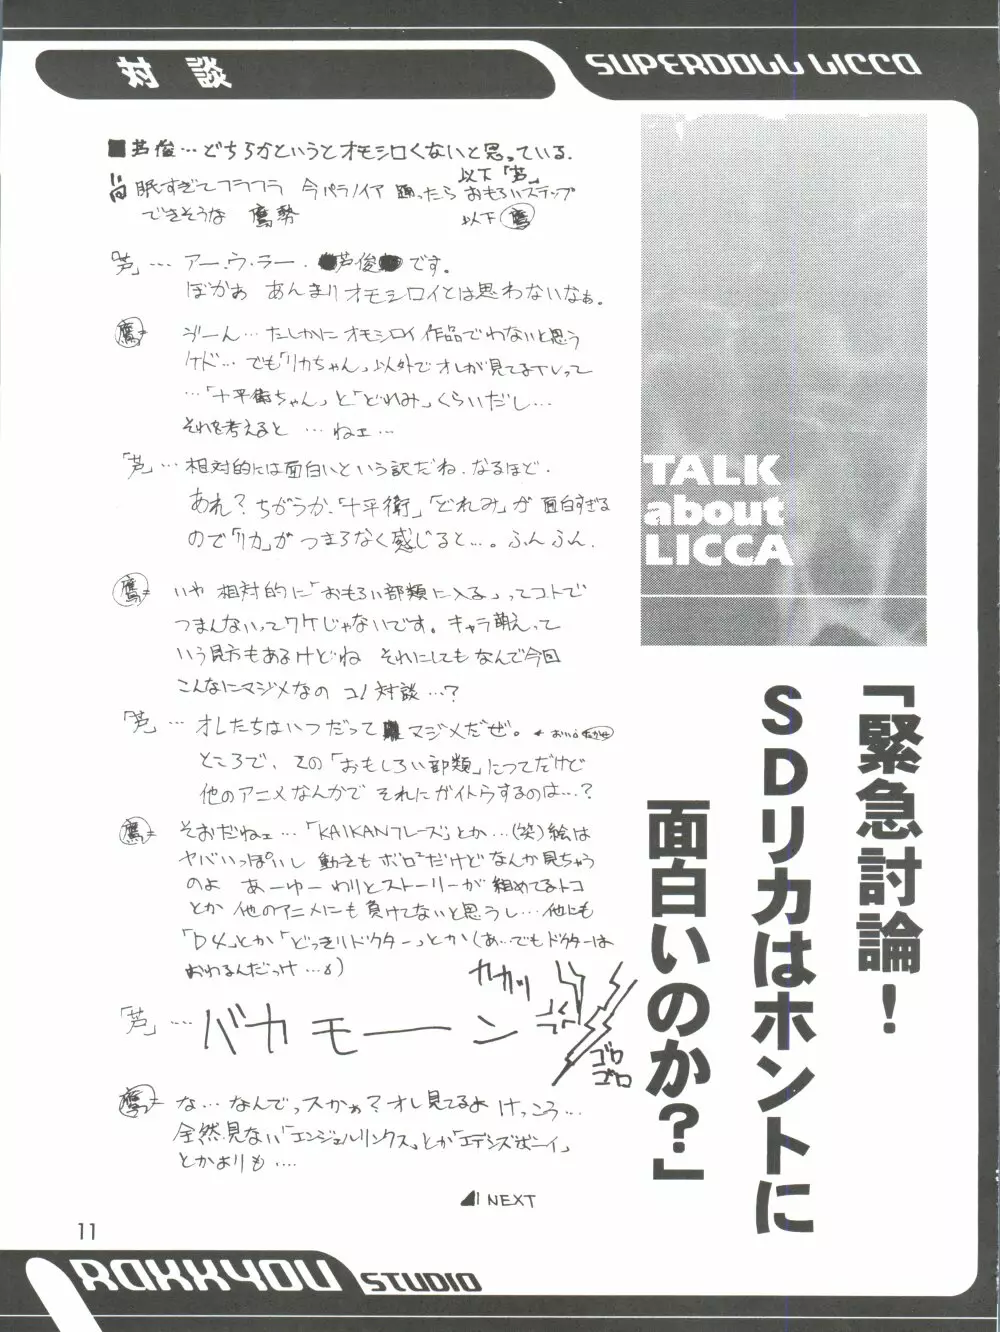 対談
SUPERDOLL LICCA
■芦俊…どちらかというとオモシロくないと思っている.
以下「芦」
眠すぎてフラフラ 今パラノイア 踊ったら おもろいステップ
できそうな 鷹勢 以下 鷹
「芦」… アー・ウ・ラー・芦俊です。
ぼかぁ あんまりオモシロイとは思わないなぁ。
鷹= ゔーん…たしかに オモシロイ作品でわないと思う
ケド… でも「リカちゃん」以外でオレが見てるTVって
…「十平衛ちゃん」と「どれみ」くらいだし…
それを考えると …ねェ…
「芦」…相対的には面白いという訳だね.なるほど.
あれ?ちがうか.「十平衛」「どれみ」が 面白すぎる
ので「リカ」が つまらなく感じると…。ふんふん.
鷹= いや 相対的に「おもろい部類に入る」ってコトで
つまんないってワケじゃないです。キャラ萌えって
いう見方もあるけどね それにしても なんで今回
こんなにマジメなの コノ対談…?
「芦」… オレたちはいつだって マジメだぜ。
ところで、その「おもしろい部類」についてだけど
他のアニメなんかで それにガイトウするのは…?
鷹= そおだねェ…「KAIKANフレーズ」とか…(笑)絵は
ヤバいっぽいし 動きもボロ²だけどなんか見ちゃう
のよ あーゆー わりとストーリーが 組めてるトコ
とか 他のアニメにも負けてないと思うし…他にも
「D4」とか「どっきりドクター」とか(あ…でもドクターは
おわるんだっけ…)
カカッ
「芦」… バカモーーン
ゴロ
ゴロ
鷹= な…なんでっスかぁ?オレ見てるよ けっこう…
全然見ない「エンジェルリンクス」とか「エデンズボーイ」
とかよりも….
NEXT
TALK
about
LICCA
「緊急討論!
SDリカはホントに
面白いのか?」
11
RAKKYOU STUDIO